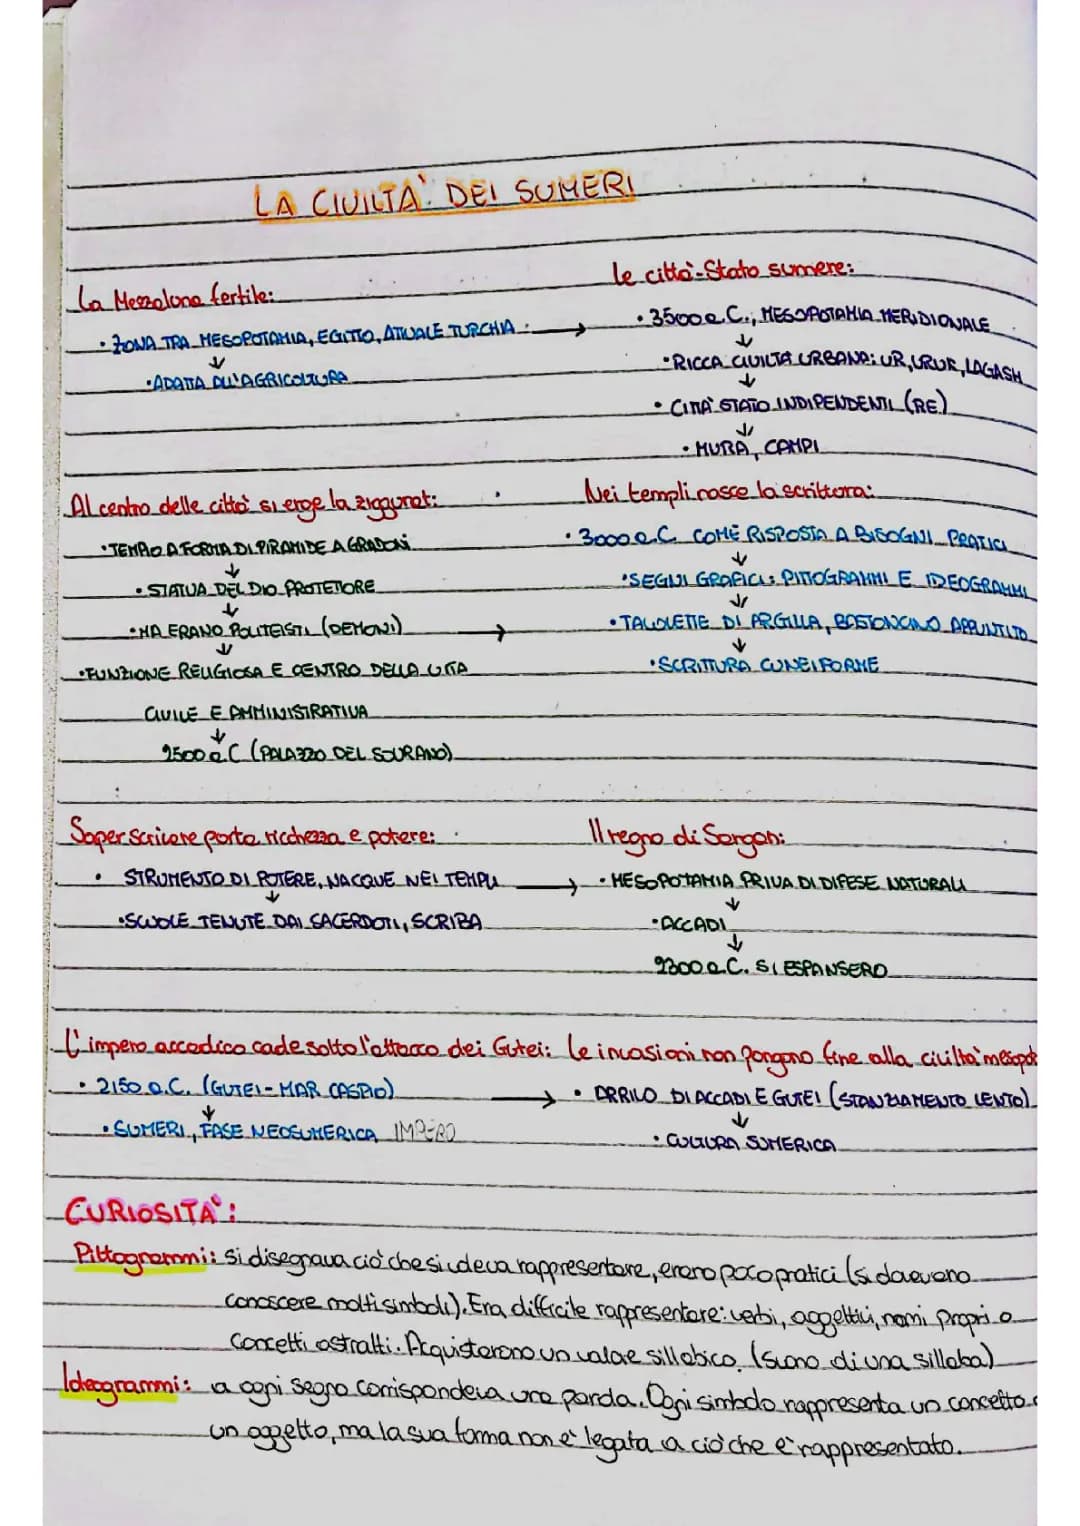 LA CIVILTA' DEI SUMERI
La Mezzaluna fertile:
• ZONA TRA MESOPOTAMIA, EGITTO, ATTUALE TURCHIA →
↓
• ADATTA ALL'AGRICOLTURA
le città-Stato sumere:
• 3500 a.C., MESOPOTAMIA MERIDIONALE
↓
• RICCA CIVILTÀ URBANA: UR, URUK, LAGASH
↓
• CITTA' STATO INDIPENDENTI (RE)
↓
• MURA, CAMPI
Al centro delle città si erge la ziggurat:
• TEMPIO A FORMA DI PIRAMIDE A GRADONI
↓
• STATUA DEL DIO PROTETTORE
↓
• MA ERANO POLITEISTI (DEMONI) →
↓
• FUNZIONE RELIGIOSA E CENTRO DELLA VITA
CIVILE E AMMINISTRATIVA
↓
2500 a.C (PALAZZO DEL SOVRANO)
Nei templi nasce la scrittura:
• 3000 a.C. COME RISPOSTA A BISOGNI PRATICI
↓
• SEGNI GRAFICI: PITTOGRAMMI E IDEOGRAMMI
↓
• TAVOLETTE DI ARGILLA, BASTONCINO APPUNTITO
↓
• SCRITTURA CUNEIFORME
Saper scrivere porta ricchezza e potere:
• STRUMENTO DI POTERE, NACQUE NEI TEMPLI →
↓
• SCUOLE TENUTE DAI SACERDOTI, SCRIBA
Il regno di Sargon:
• MESOPOTAMIA PRIVA DI DIFESE NATURALI
↓
• ACCADI
↓
2300 a.C. SI ESPANSERO
L'impero accadico cade sotto l'attacco dei Gutei:
• 2150 a.C. (GUTEI - MAR CASPIO) →
↓
• SUMERI, FASE NEOSUMERICA IMPERO
Le invasioni non pongono fine alla civiltà mesopot
• ARRIVO DI ACCADI E GUTEI (STANZIAMENTO LENTO)
↓
• CULTURA SUMERICA
CURIOSITA':
Pittogrammi: si disegnava ciò che si voleva rappresentare, erano poco pratici (si dovevano
conoscere molti simboli). Era difficile rappresentare: verbi, aggettivi, nomi propri o
concetti astratti. Acquistarono un valore sillabico. (suono di una sillaba)
Ideogrammi: a ogni segno corrispondeva una parola. Ogni simbolo rappresenta un concetto o
un oggetto, ma la sua forma non è legata a ciò che è rappresentato.